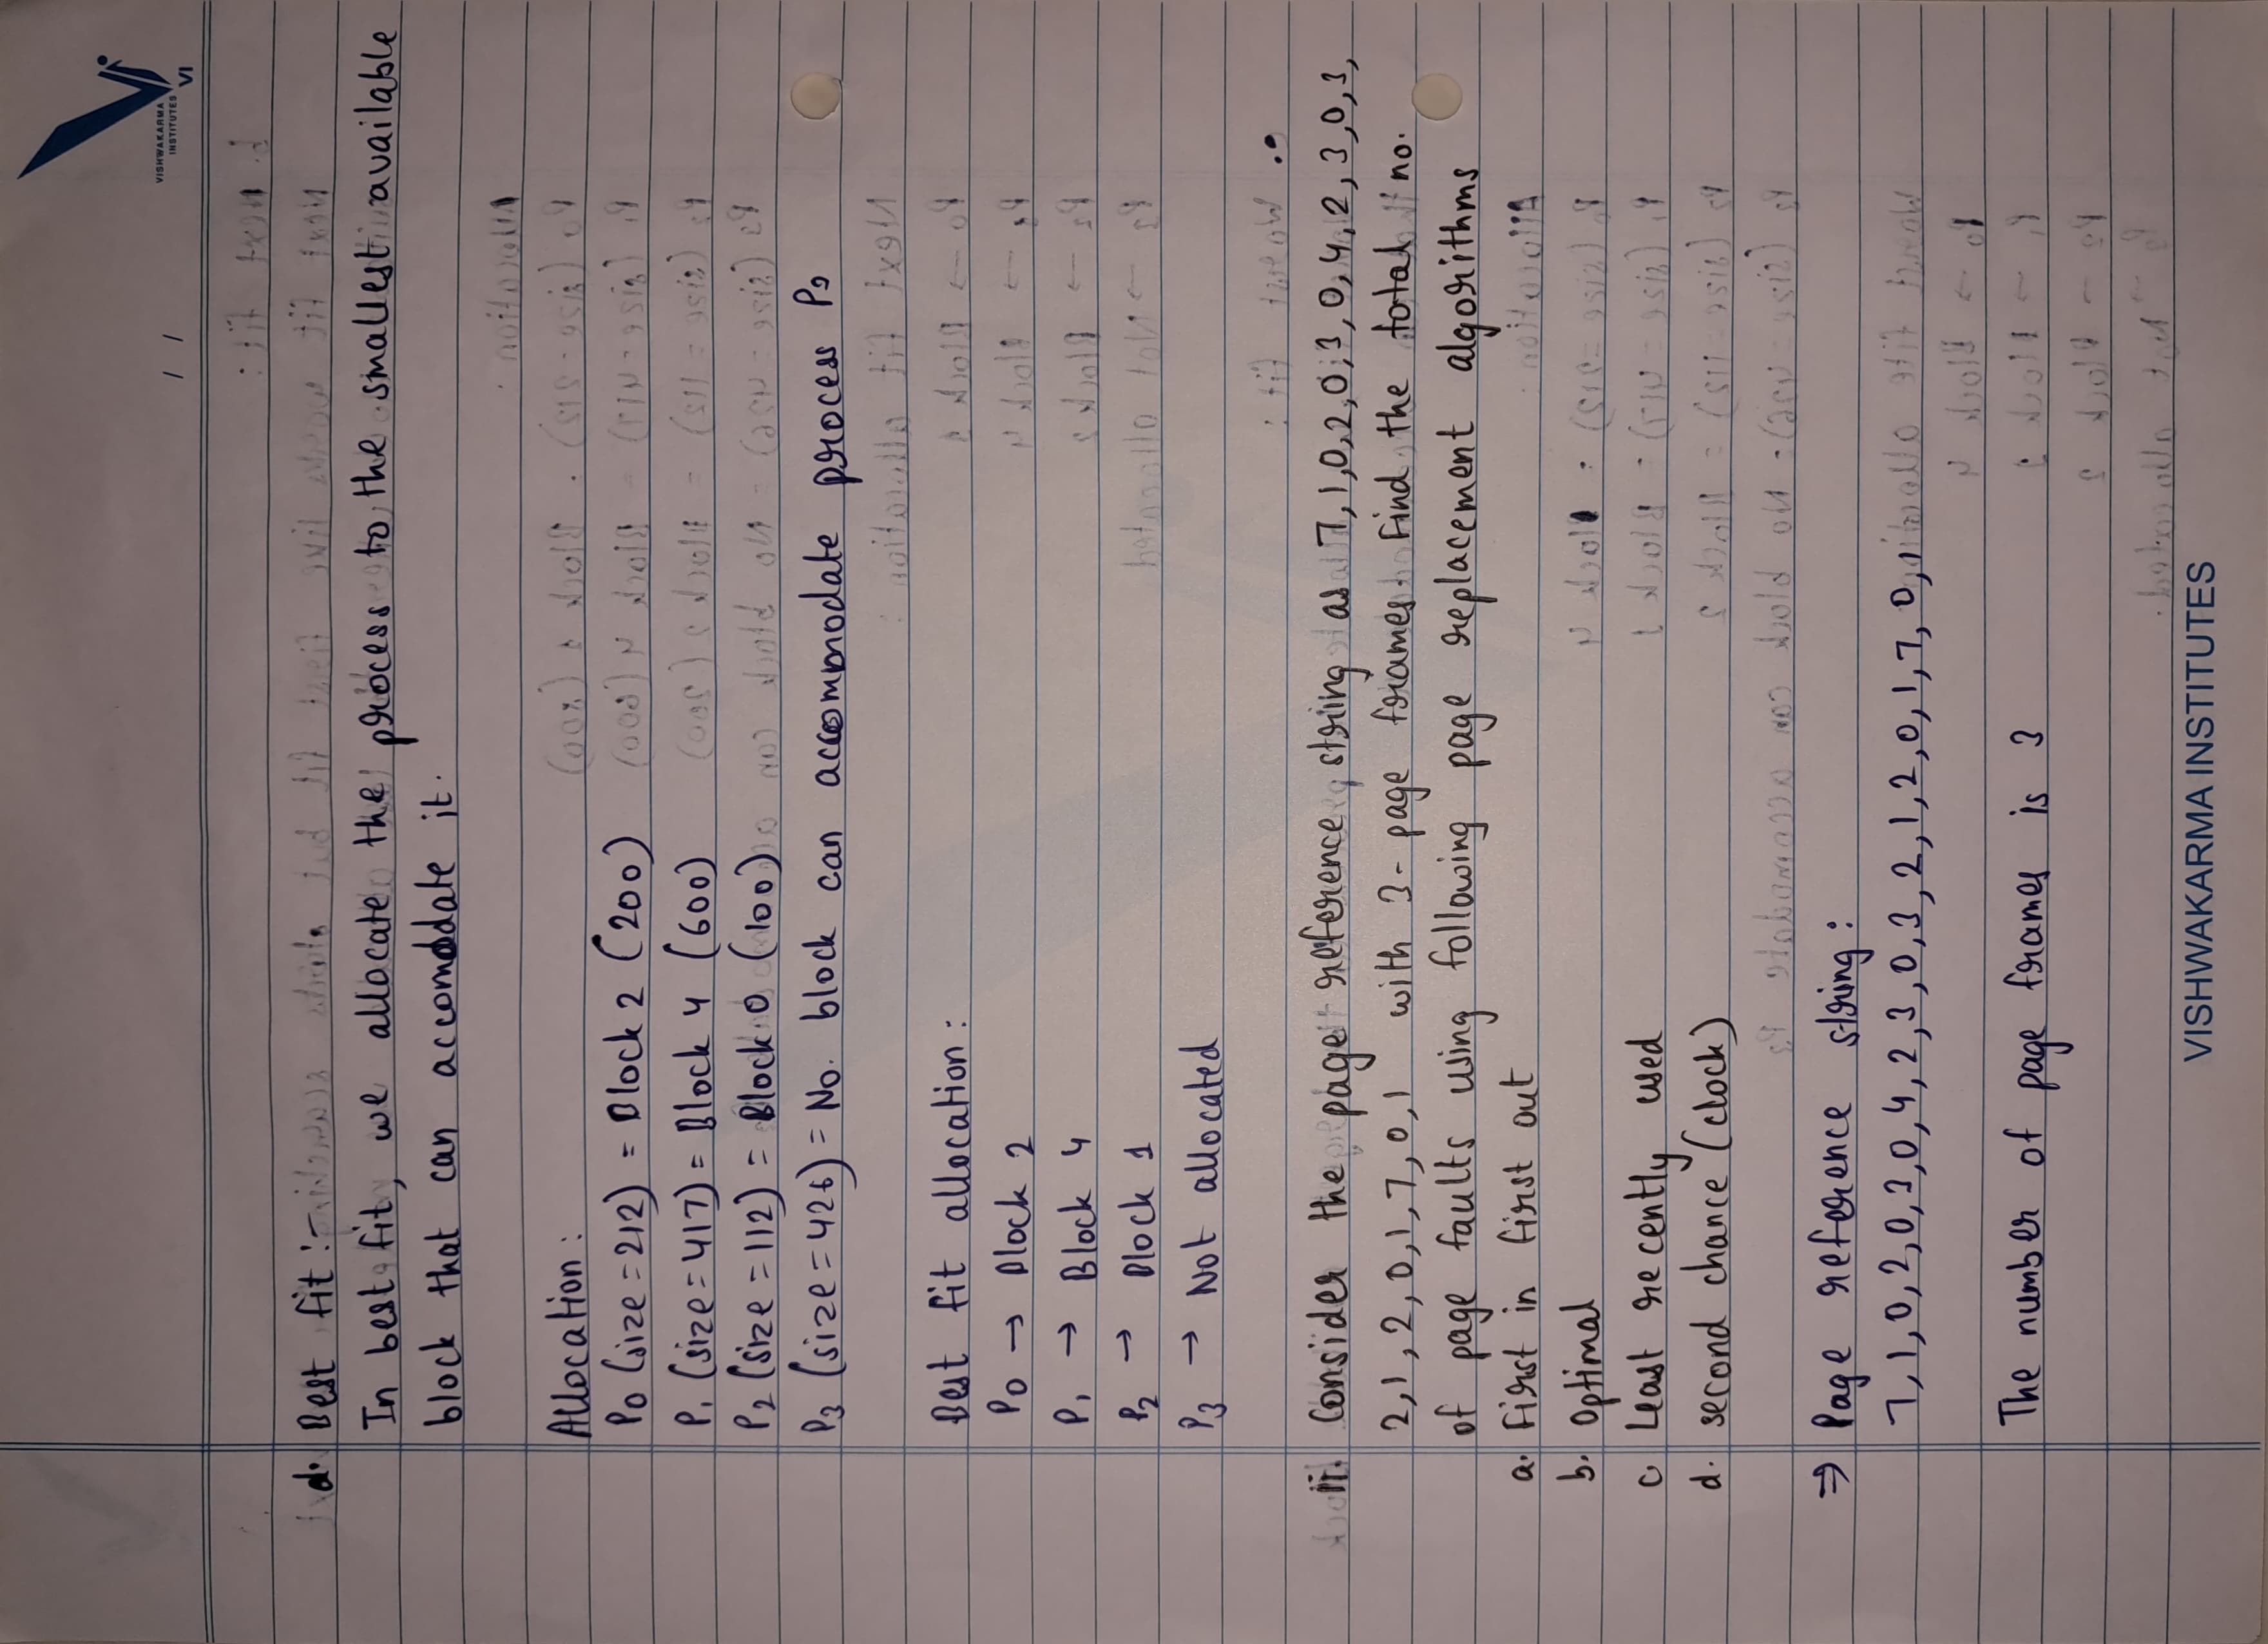 VISHWAKARMA
INSTITUTES
VI
/ /
d. Best fit :-
In best fit, we allocate the process to the smallest available
block that can accomodate it.
Allocation :
P0 (size = 212) = Block 2 (200)
P1 (size = 417) = Block 4 (600)
P2 (size = 112) = Block 0 (100)
P3 (size = 426) = No. block can accommodate process P3
Best fit allocation :
P0 → Block 2
P1 → Block 4
P2 → Block 1
P3 → Not allocated
ii. Consider the page reference string as 7,1,0,2,0,3,0,4,2,3,0,3,
2,1,2,0,1,7,0,1 with 3- page frames. Find the total no.
of page faults using following page replacement algorithms
a. First in first out
b. Optimal
c Least recently used
d. second chance (clock)
⇒ Page reference string :
7,1,0,2,0,3,0,4,2,3,0,3,2,1,2,0,1,7,0,1
The number of page frames is 3
VISHWAKARMA INSTITUTES